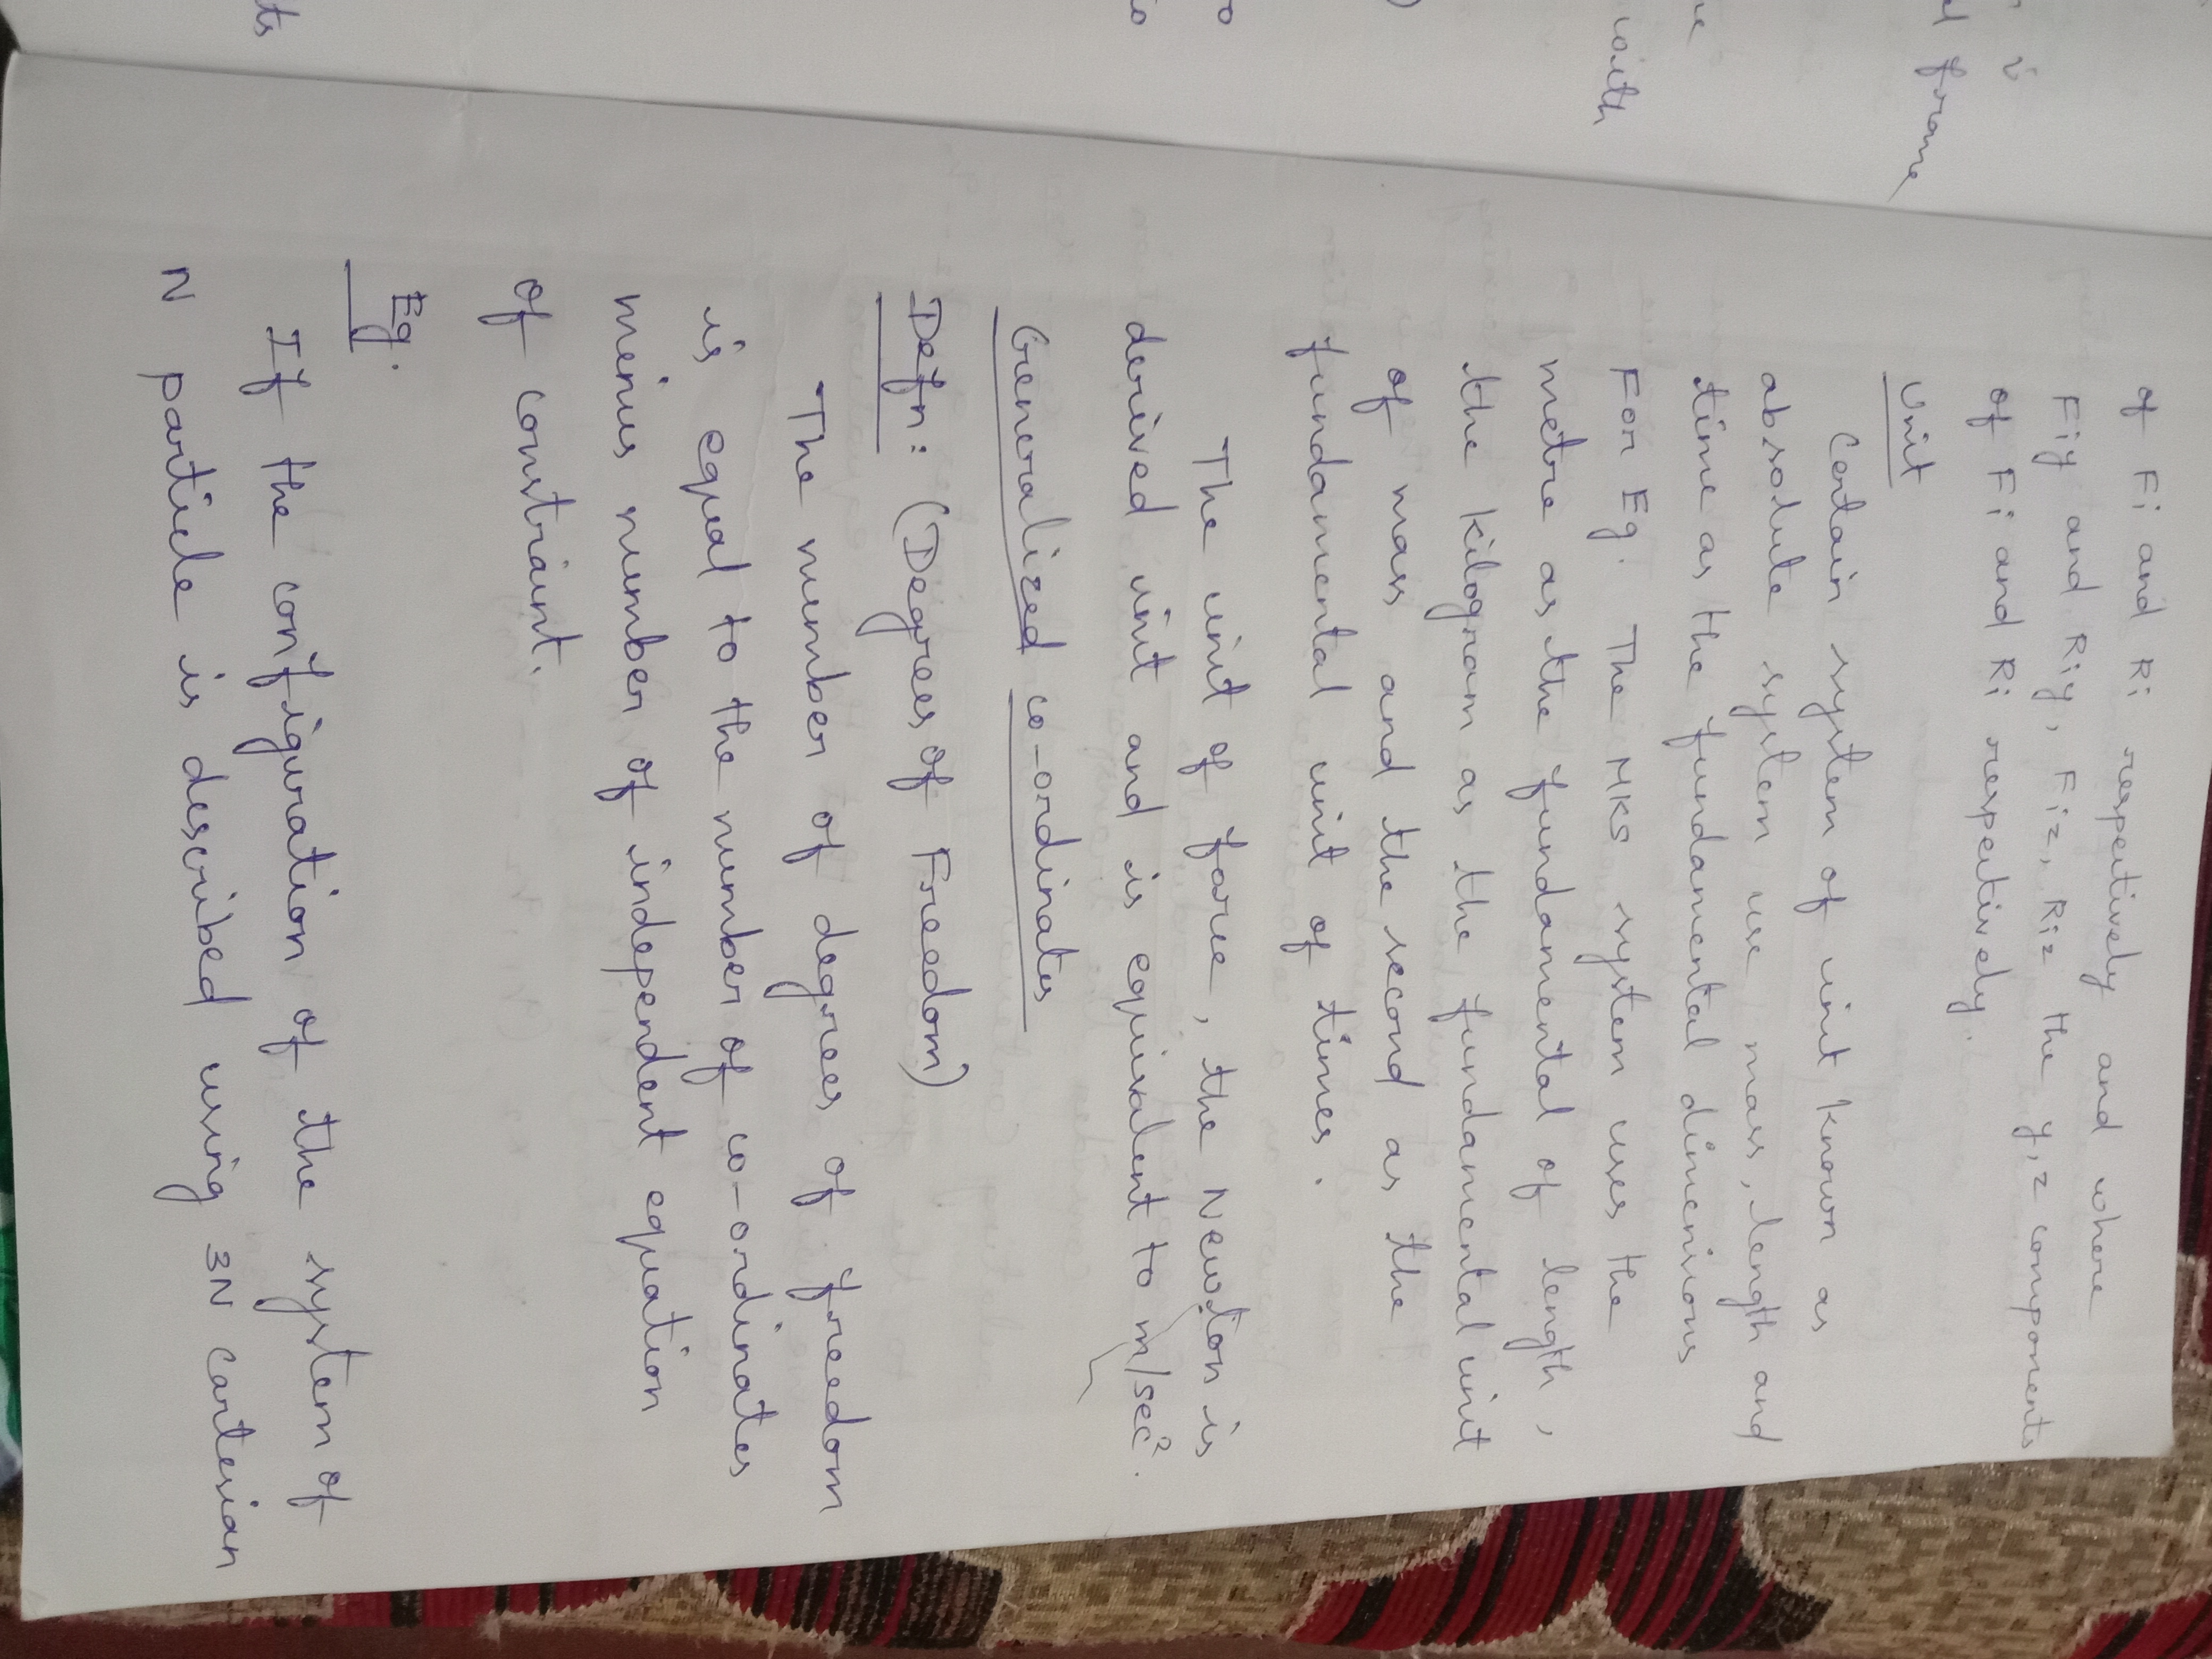 of Fi and Ri respectively and where
Fiy and Riy, Fiz, Riz the y, z components
of Fi and Ri respectively.
Unit
Certain system of unit known as
absolute system use mass, length and
time as the fundamental dimensions
For Eg. The MKS system uses the
metre as the fundamental of length,
the kilogram as the fundamental unit
of mass and the second as the
fundamental unit of times.
The unit of force, the Newton is
derived unit and is equivalent to m/sec².
Generalized co-ordinates
Defn: (Degrees of Freedom)
The number of degrees of freedom
is equal to the number of co-ordinates
menius number of independent equation
of constraint.
Eg.
If the configuration of the system of
N particle is described using 3N cartesian
frame
with